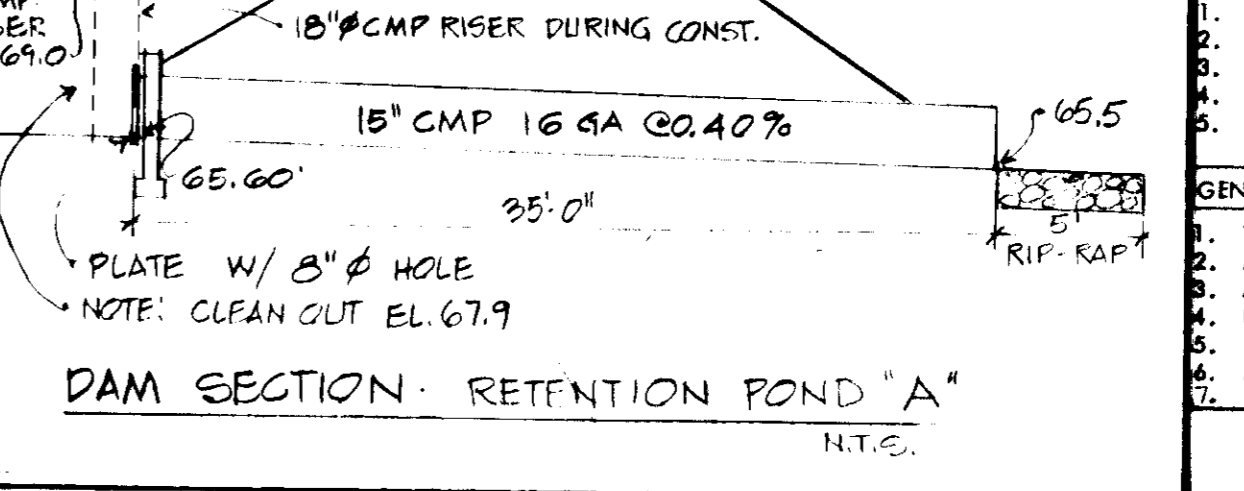 69.0
18"⌀ CMP RISER DURING CONST.
15" CMP 16 GA @0.40%
65.5
65.60'
35'-0"
5'
RIP-RAP
PLATE W/ 8"⌀ HOLE
NOTE: CLEAN OUT EL. 67.9
DAM SECTION · RETENTION POND "A"
N.T.S.
1.
2.
3.
4.
5.
GEN
1.
2.
3.
4.
5.
6.
7.